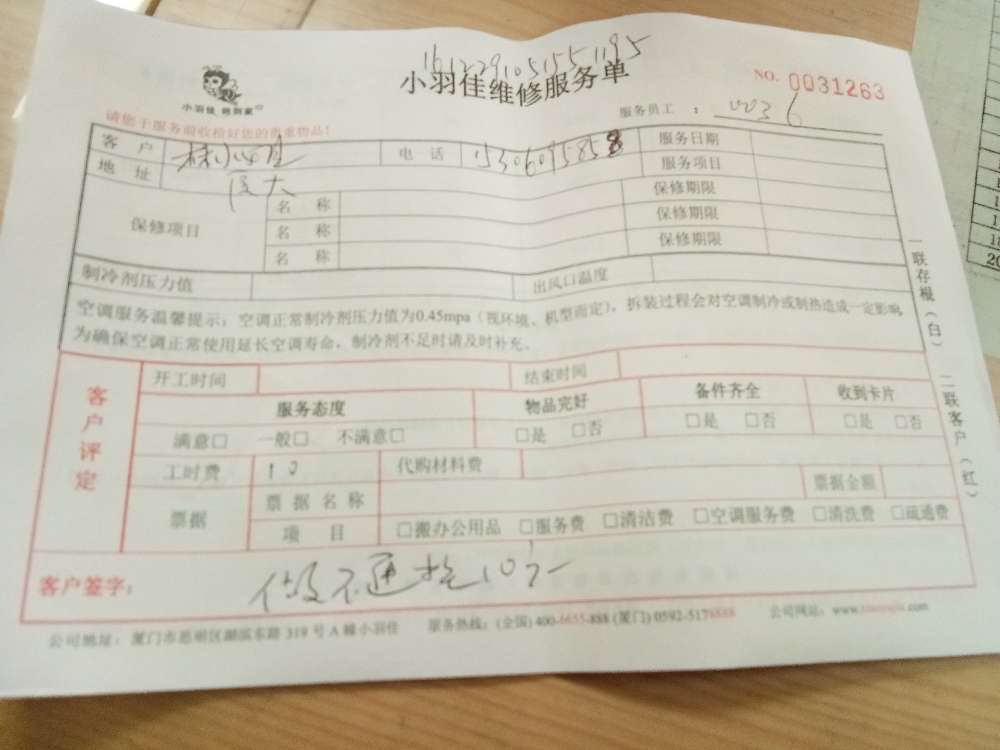 1612291051551195
小羽佳维修服务单
NO. 0031263
小羽佳 到到家
请您于服务前收拾好您的贵重物品!
服务员工 : 0036
客户 电话 服务日期
地址 厦大 服务项目
保修项目
名称 保修期限
名称 保修期限
名称 保修期限
制冷剂压力值 出风口温度
空调服务温馨提示:空调正常制冷剂压力值为0.45mpa(视环境、机型而定),拆装过程会对空调制冷或制热造成一定影响
为确保空调正常使用延长空调寿命,制冷剂不足时请及时补充。
客户评定
开工时间 结束时间
服务态度 物品完好 备件齐全 收到卡片
满意□ 一般□ 不满意□ □是 □否 □是 □否 □是 □否
工时费 10 代购材料费
票据 票据名称 票据金额
项目 □搬办公用品 □服务费 □清洁费 □空调服务费 □清洗费 □疏通费
客户签字: 做不通 10元
公司地址:厦门市思明区湖滨东路 319 号 A 幢小羽佳 服务热线:(全国) 400-6655-888 (厦门) 0592-5178888 公司网站:www.
一联存根(白) 二联客户(红)